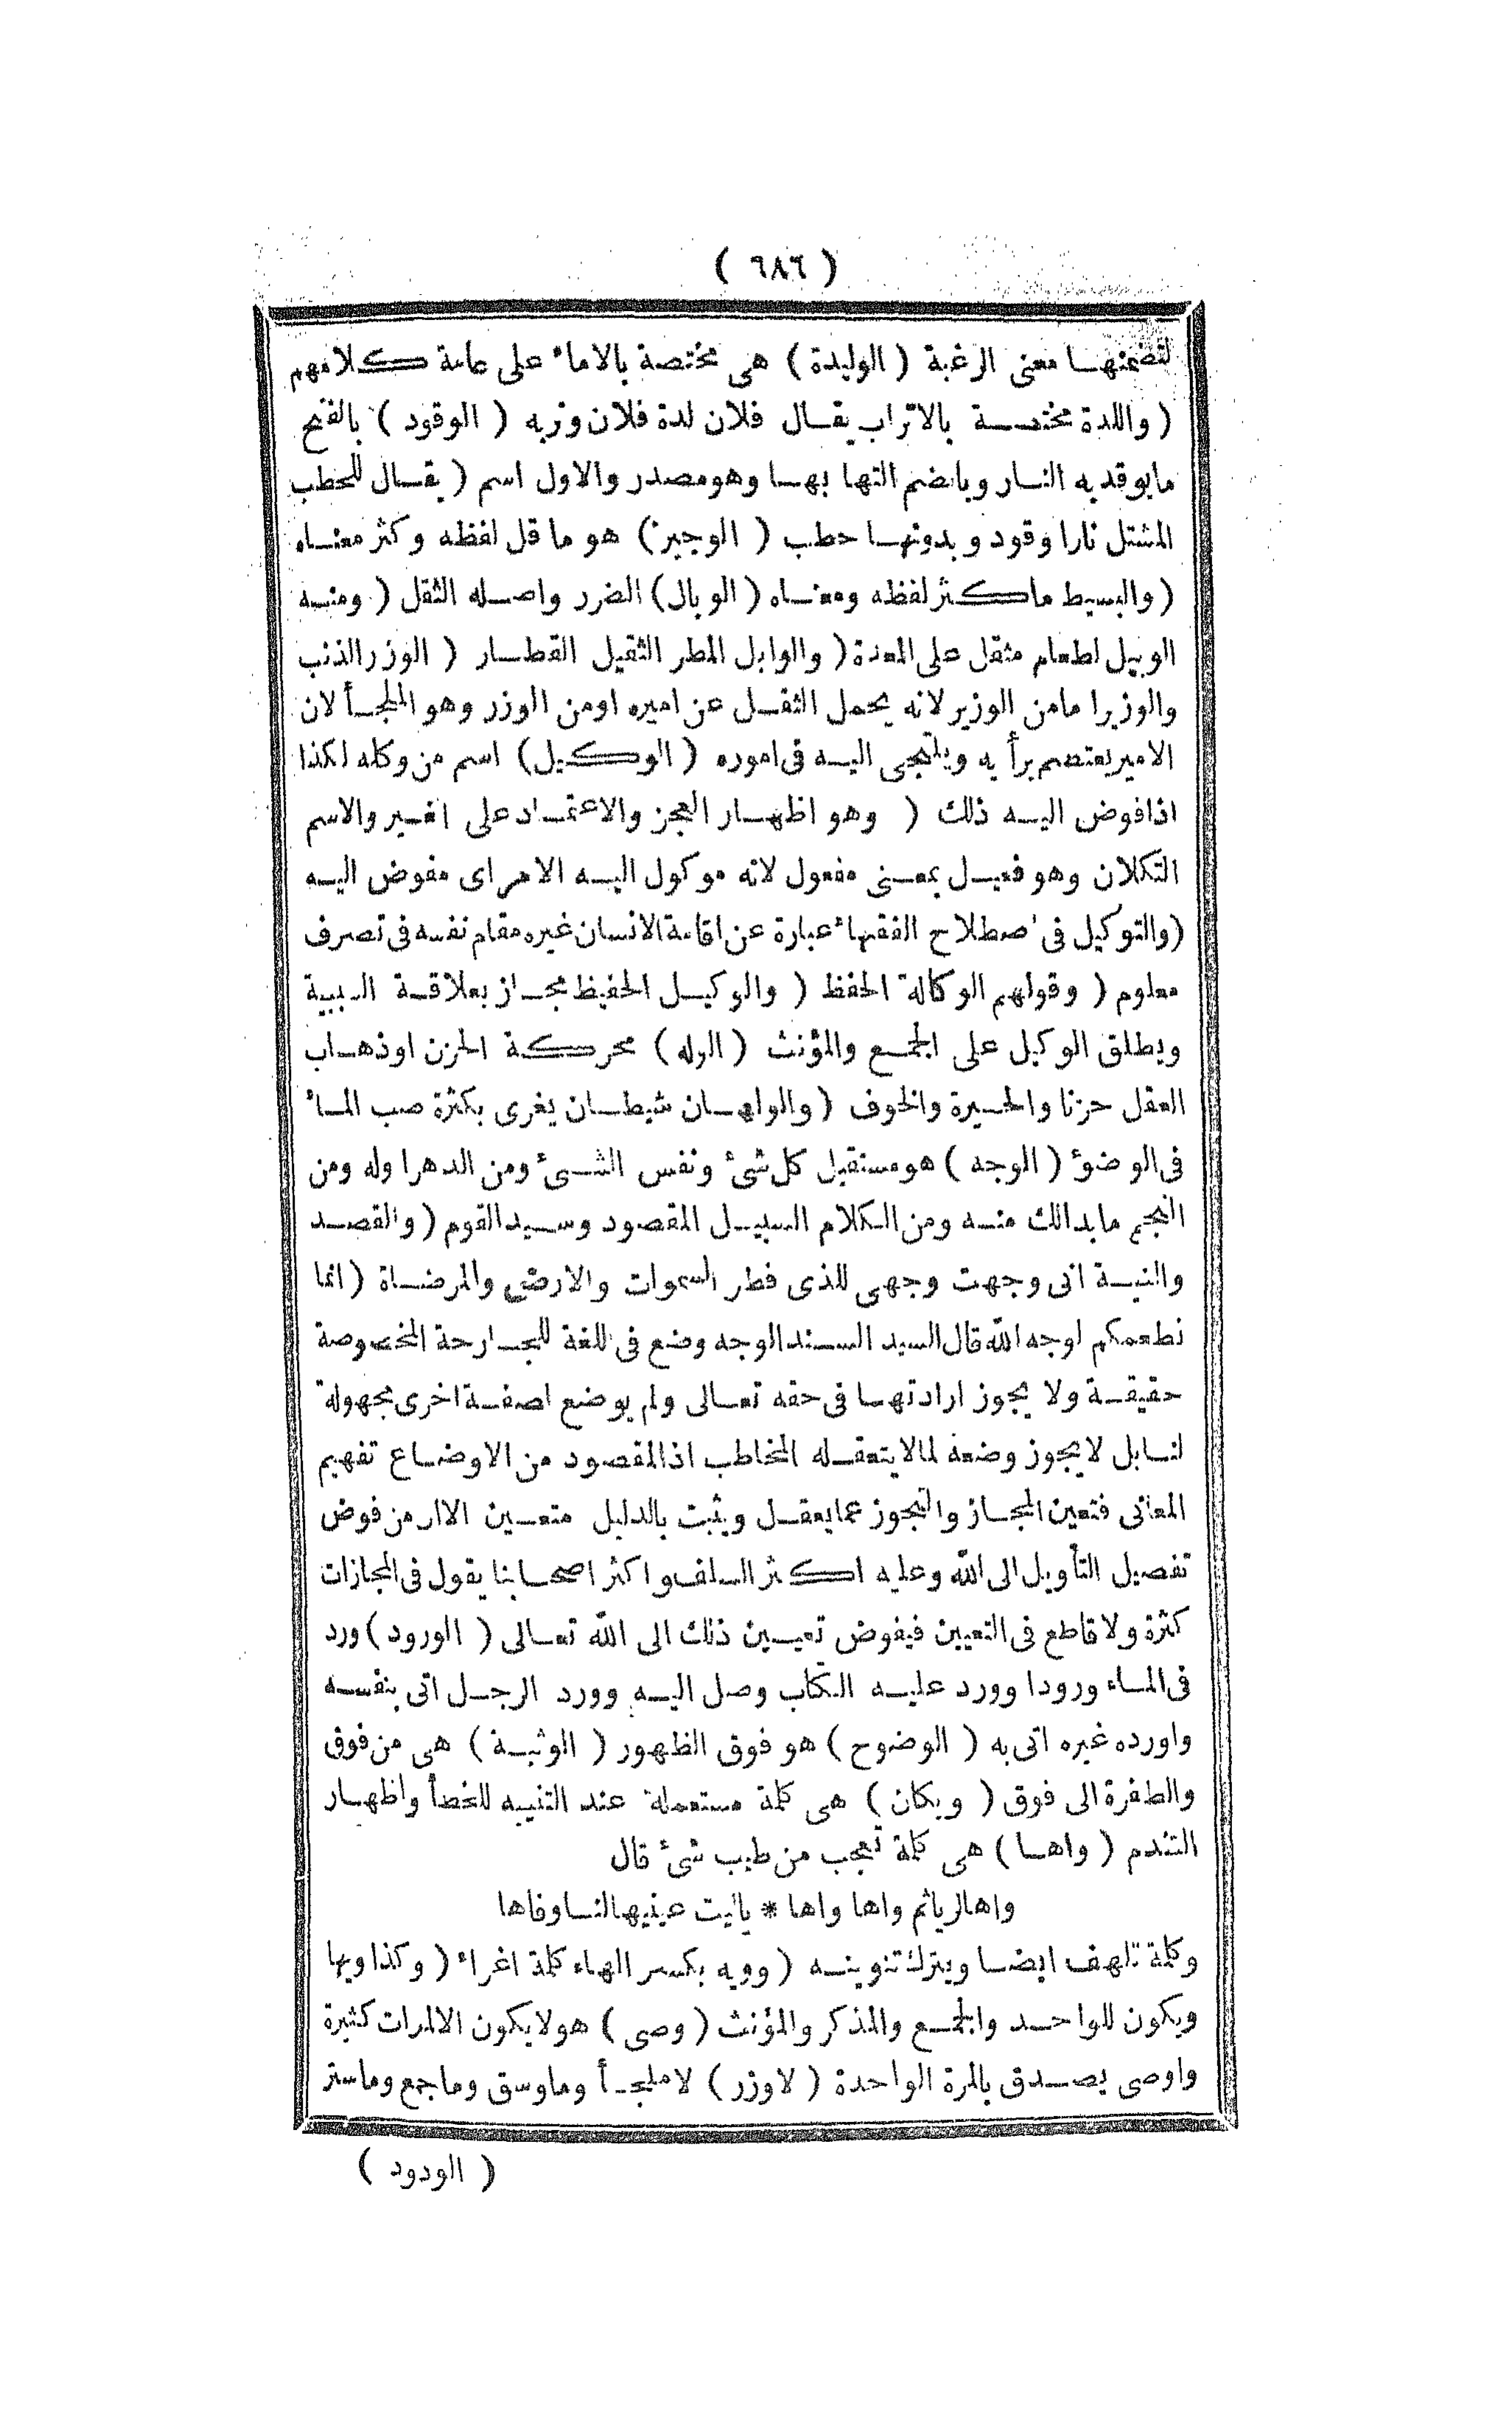 ( ٦٨٦ )
لتضمنها معنى الرغبة ( الوليدة ) هى مختصة بالاماء على عامة كلامهم
( واللدة مختصة بالاتراب يقال فلان لدة فلان وتربه ( الوقود ) بالفتح
مايوقد به النار وبالضم التهابها وهو مصدر والاول اسم ( يقال للحطب
المشتل نارا وقود وبدونها حطب ( الوجيز ) هو ما قل لفظه وكثر معناه
( والبسيط ماكثر لفظه ومعناه ( الوبال ) الضرر واصله الثقل ( ومنه
الوبيل لطعام مثقل على المعدة ( والوابل المطر الثقيل القطار ( الوزر الذنب
والوزير اما من الوزير لانه يحمل الثقل عن اميره اومن الوزر وهو الملجأ لان
الامير يعتصم برأيه ويلتجى اليه فى اموره ( الوكيل ) اسم من وكله لكذا
اذا فوض اليه ذلك ( وهو اظهار العجز والاعتماد على الغير والاسم
التكلان وهو فعيل بمعنى مفعول لانه موكول اليه الامر اى مفوض اليه
( والتوكيل فى اصطلاح الفقهاء عبارة عن اقامة الانسان غيره مقام نفسه فى تصرف
معلوم ( وقولهم الوكالة الحفظ ( والوكيل الحفيظ مجاز بعلاقة السببية
ويطلق الوكيل على الجمع والمؤنث ( الوله ) محركة الحزن اوذهاب
العقل حزنا والحيرة والخوف ( والولهان شيطان يغرى بكثرة صب الماء
فى الوضوء ( الوجه ) هو مستقبل كل شىء ونفس الشىء ومن الدهر اوله ومن
النجم مابدالك منه ومن الكلام السبيل المقصود وسيد القوم ( والقصد
والنية انى وجهت وجهى للذى فطر السموات والارض والمرضاة ( انما
نطعمكم لوجه الله قال السيد السند الوجه وضع فى اللغة للجارحة المخصوصة
حقيقة ولا يجوز ارادتها فى حقه تعالى ولم يوضع لصفة اخرى مجهولة
لنا بل لا يجوز وضعه لما لا يتعقله المخاطب اذ المقصود من الاوضاع تفهيم
المعانى فتعين المجاز والتجوز عما يعقل ويثبت بالدليل متعين الا ان من فوض
تفصيل التأويل الى الله وعليه اكثر السلف واكثر اصحابنا يقول فى المجازات
كثرة ولا قاطع فى التعيين فيفوض تعيين ذلك الى الله تعالى ( الورود ) ورد
فى الماء ورودا وورد عليه الكتاب وصل اليه وورد الرجل اتى بنفسه
واورده غيره اتى به ( الوضوح ) هو فوق الظهور ( الوثبة ) هى من فوق
والطفرة الى فوق ( ويكان ) هى كلمة مستعملة عند التنبيه للخطأ واظهار
التندم ( واها ) هى كلمة تعجب من طيب شىء قال
واها لريا ثم واها واها * ياليت عينيها لنا وفاها
وكلمة تلهف ايضا ويترك تنوينه ( وويه بكسر الهاء كلمة اغراء ( وكذا ويها
ويكون للواحد والجمع والمذكر والمؤنث ( وصى ) هو لا يكون الا لمرات كثيرة
واوصى يصدق بالمرة الواحدة ( لاوزر ) لا ملجأ وماوسق وماجمع وماستر
( الودود )